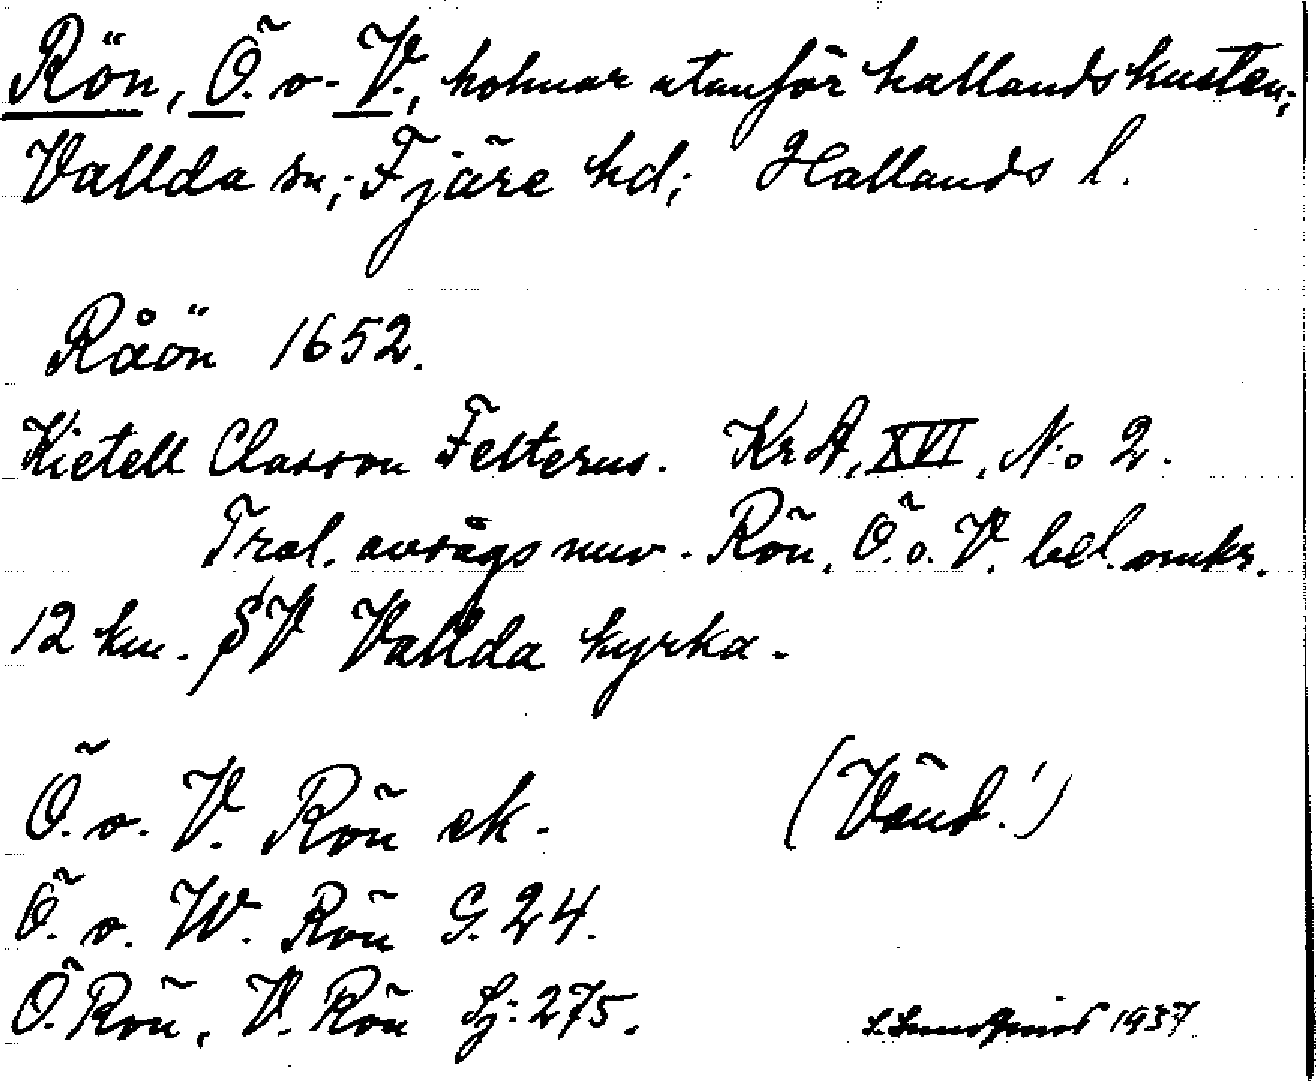 Rön, Ö. o. V., holmar utanför hallandskusten;
Vallda sn; Fjäre hd; Hallands l.
Råön 1652.
Kietell Classon Felterus. KrA, XVI, N:o 2.
Trol. avsågs nuv. Rön, Ö. o. V. bel. omkr.
12 km. SV Vallda kyrka.
Ö. o. V. Rön ek. (Vänd!)
Ö. o. W. Rön G. 24.
Ö. Rön, V. Rön Sj: 275. 1937